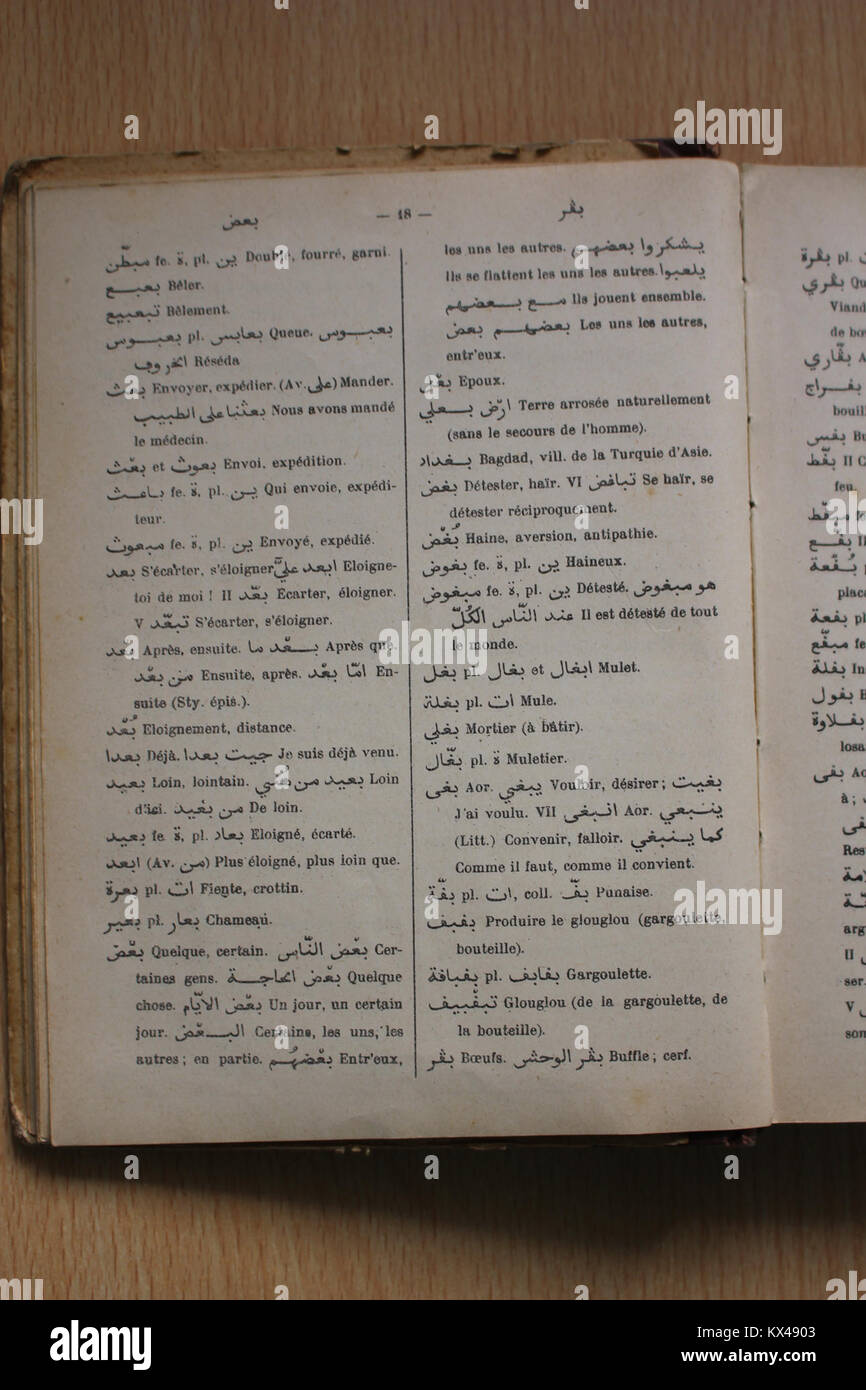 بعض
— 48 —
بقر
مبطّن fe. ة, pl. ين Doublé, fourré, garni.
بعبع Bêler.
تبعبيع Bêlement.
بعبوس pl. بعابس Queue. بعبوس
الخروف Réséda
بعث Envoyer, expédier. (Av. على) Mander.
بعثنا على الطبيب Nous avons mandé
le médecin.
بعث et بعوث Envoi, expédition.
باعث fe. ة, pl. ين Qui envoie, expédi-
teur.
مبعوث fe. ة, pl. ين Envoyé, expédié.
بعد S'écarter, s'éloigner ابعد عليّ Eloigne-
toi de moi ! II بعّد Ecarter, éloigner.
V تبعّد S'écarter, s'éloigner.
بعد Après, ensuite. بعد ما Après que.
من بعد Ensuite, après. امّا بعد En-
suite (Sty. épis.).
بُعد Eloignement, distance.
بعدا Déjà. جيت بعدا Je suis déjà venu.
بعيد Loin, lointain. بعيد من Loin
d'ici. من بعيد De loin.
بعيد fe. ة, pl. بعاد Eloigné, écarté.
ابعد (Av. من) Plus éloigné, plus loin que.
بعرة pl. ات Fiente, crottin.
بعير pl. بعار Chameau.
بعض Quelque, certain. بعض النّاس Cer-
taines gens. بعض الحاجة Quelque
chose. بعض الايّام Un jour, un certain
jour. البعض Certains, les uns, les
autres ; en partie. بعضهُم Entr'eux,
les uns les autres. يشكروا بعضهم
Ils se flattent les uns les autres. يلعبوا
مع بعضهم Ils jouent ensemble.
بعضهم بعض Les uns les autres,
entr'eux.
بعل Epoux.
ارض بعلي Terre arrosée naturellement
(sans le secours de l'homme).
بغداد Bagdad, vill. de la Turquie d'Asie.
بغض Détester, haïr. VI تباغض Se haïr, se
détester réciproquement.
بُغض Haine, aversion, antipathie.
بغوض fe. ة, pl. ين Haineux.
مبغوض fe. ة, pl. ين Détesté. هو مبغوض
عند النّاس الكُلّ Il est détesté de tout
le monde.
بغل pl. بغال et ابغال Mulet.
بغلة pl. ات Mule.
بغلي Mortier (à bâtir).
بغّال pl. ة Muletier.
بغى Aor. يبغي Vouloir, désirer ; بغيت
J'ai voulu. VII انبغى Aor. ينبغي
(Litt.) Convenir, falloir. كما ينبغي
Comme il faut, comme il convient.
بقّة pl. ات, coll. بقّ Punaise.
بقبق Produire le glouglou (gargoulette,
bouteille).
بقباقة pl. بقابق Gargoulette.
تبقبيق Glouglou (de la gargoulette, de
la bouteille).
بقر Bœufs. بقر الوحش Buffle ; cerf.
بقرة pl.
بقري Qu
Viand
de bo
بقّاري A
بقراج
bouil
بقس Bu
بقّط II C
feu.
مبقّط
بقع II
بُقعة
place
بقعة pl
مبقّع fe
بقلة In
بقول
بقلاوة
losa
بقى Ao
à ;
Res
arg
II
ser.
V
son
alamy
Image ID: KX4903
www.alamy.com